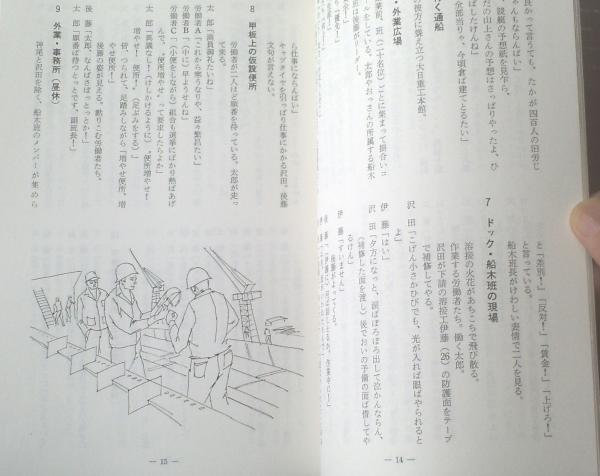 良かって言うても、たかが四百人の旧労じ
ゃんもならんばい」
競艇の予想紙を見乍ら、
だの山上さんの予想はさっぱりやったよ、ひ
ばしたけんね」
全部当りゃ、今頃倉ば建てとるたい」
く通船
の彼方に聳え立つ大日重工本館。
・外業広場
と「差別！」「反対！」「賃金！」「上げろ！」
と言っている。
船木班長がけわしい表情で二人を見る。
7 ドック・船木班の現場
溶接の火花があちこちで飛び散る。
作業する労働者たち。働く太郎。
沢田が下請の溶接工伊藤（26）の防護面をテープ
で補修してやる。
沢 田「こげん小さかひびでも、光が入れば眼ばやられると
よ」
伊 藤「はい」
沢 田「夕方になっと、涙ばぽろぽろ出して泣かんならん、
（補修した面を渡し）後でおいの予備の面ば借してや
るけん」
伊 藤「すいません」
後藤がよってくる。
— 14 —
う仕事にならんばい」
キャプタイヤを引っぱり仕事にかかる沢田。後藤
文句が言えない。
8 甲板上の仮設便所
労働者が二人ほど順番を待っている。太郎が走っ
て来る。
太 郎「満員御礼たいね」
労働者A「これから寒うなりや、益々繁昌たい」
労働者B「（中に）早ようせんね」
労働者C「（小便をしながら）組合も選挙にばかり熱ばあげ
んで、〝便所増やせ〟って要求したらよか」
太 郎「異議なし！（けしかけるように）〝便所増やせ！
増やせ！便所！〟（足ぶみをする）」
皆、つられて、足踏みしながら「増やせ便所、増
やせ便所」
後藤の姿が見える。黙りこむ労働者たち。
後 藤「太郎、なんばさぼっとっとか！」
太 郎「順番ば待っとっとです、副班長！」
9 外業・事務所（昼休）
神尾と沢田を除く、船木班のメンバーが集めら
— 15 —